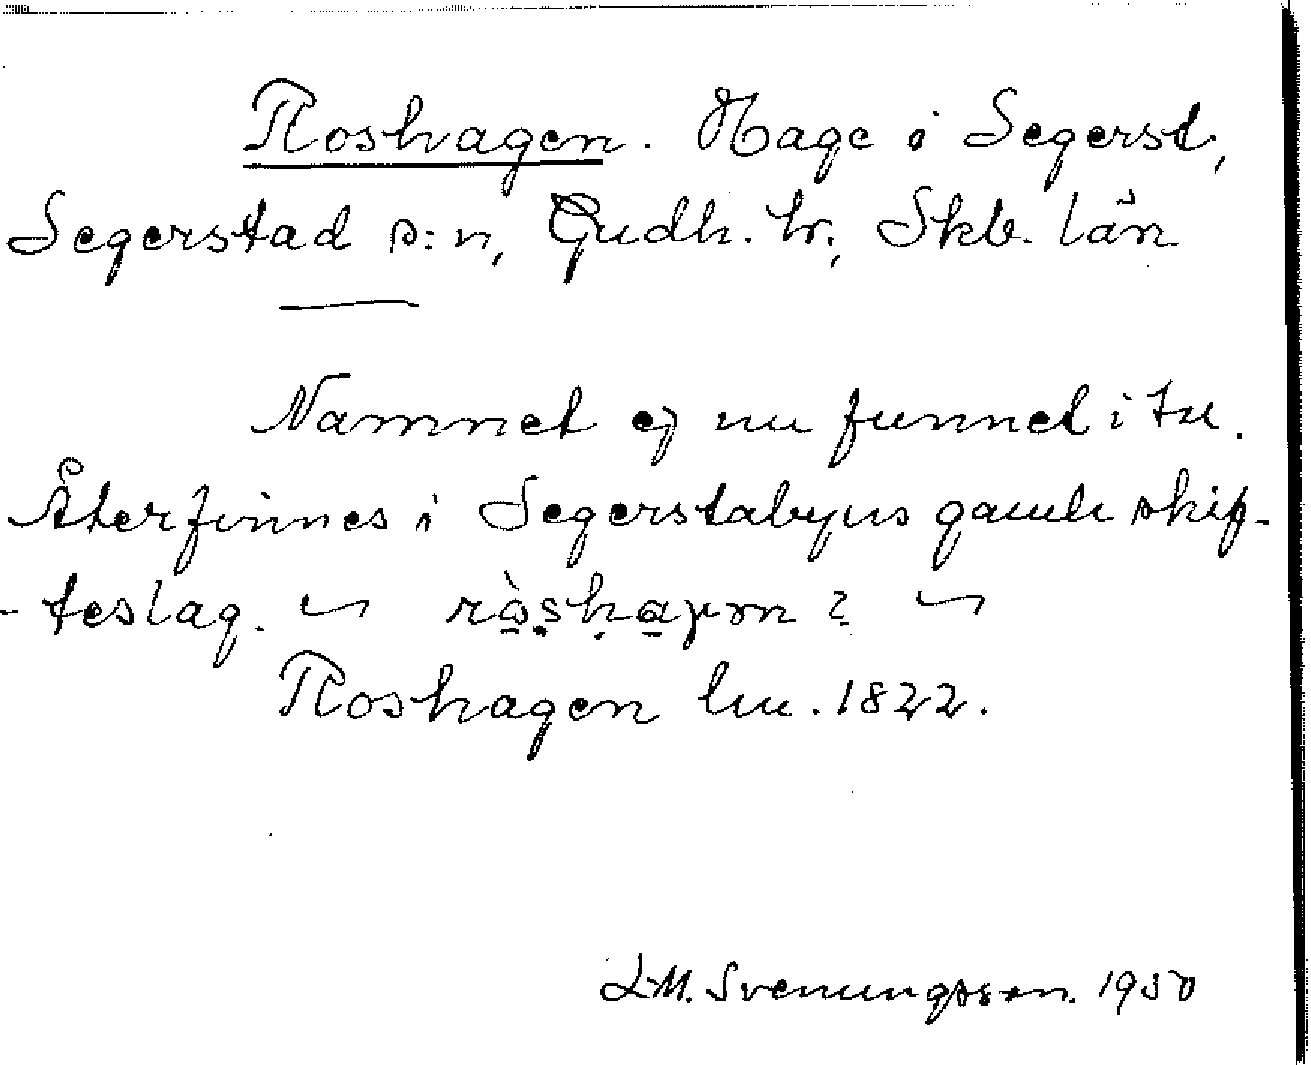 Roshagen. Hage i Segerst,
Segerstad s:n, Gudh. hr, Skb. län
Namnet ej nu funnet i tu.
Återfinnes i Segerstabyns gamla skif-
-teslag.
Roshagen lm. 1822.
L.M. Svenungsson. 1950